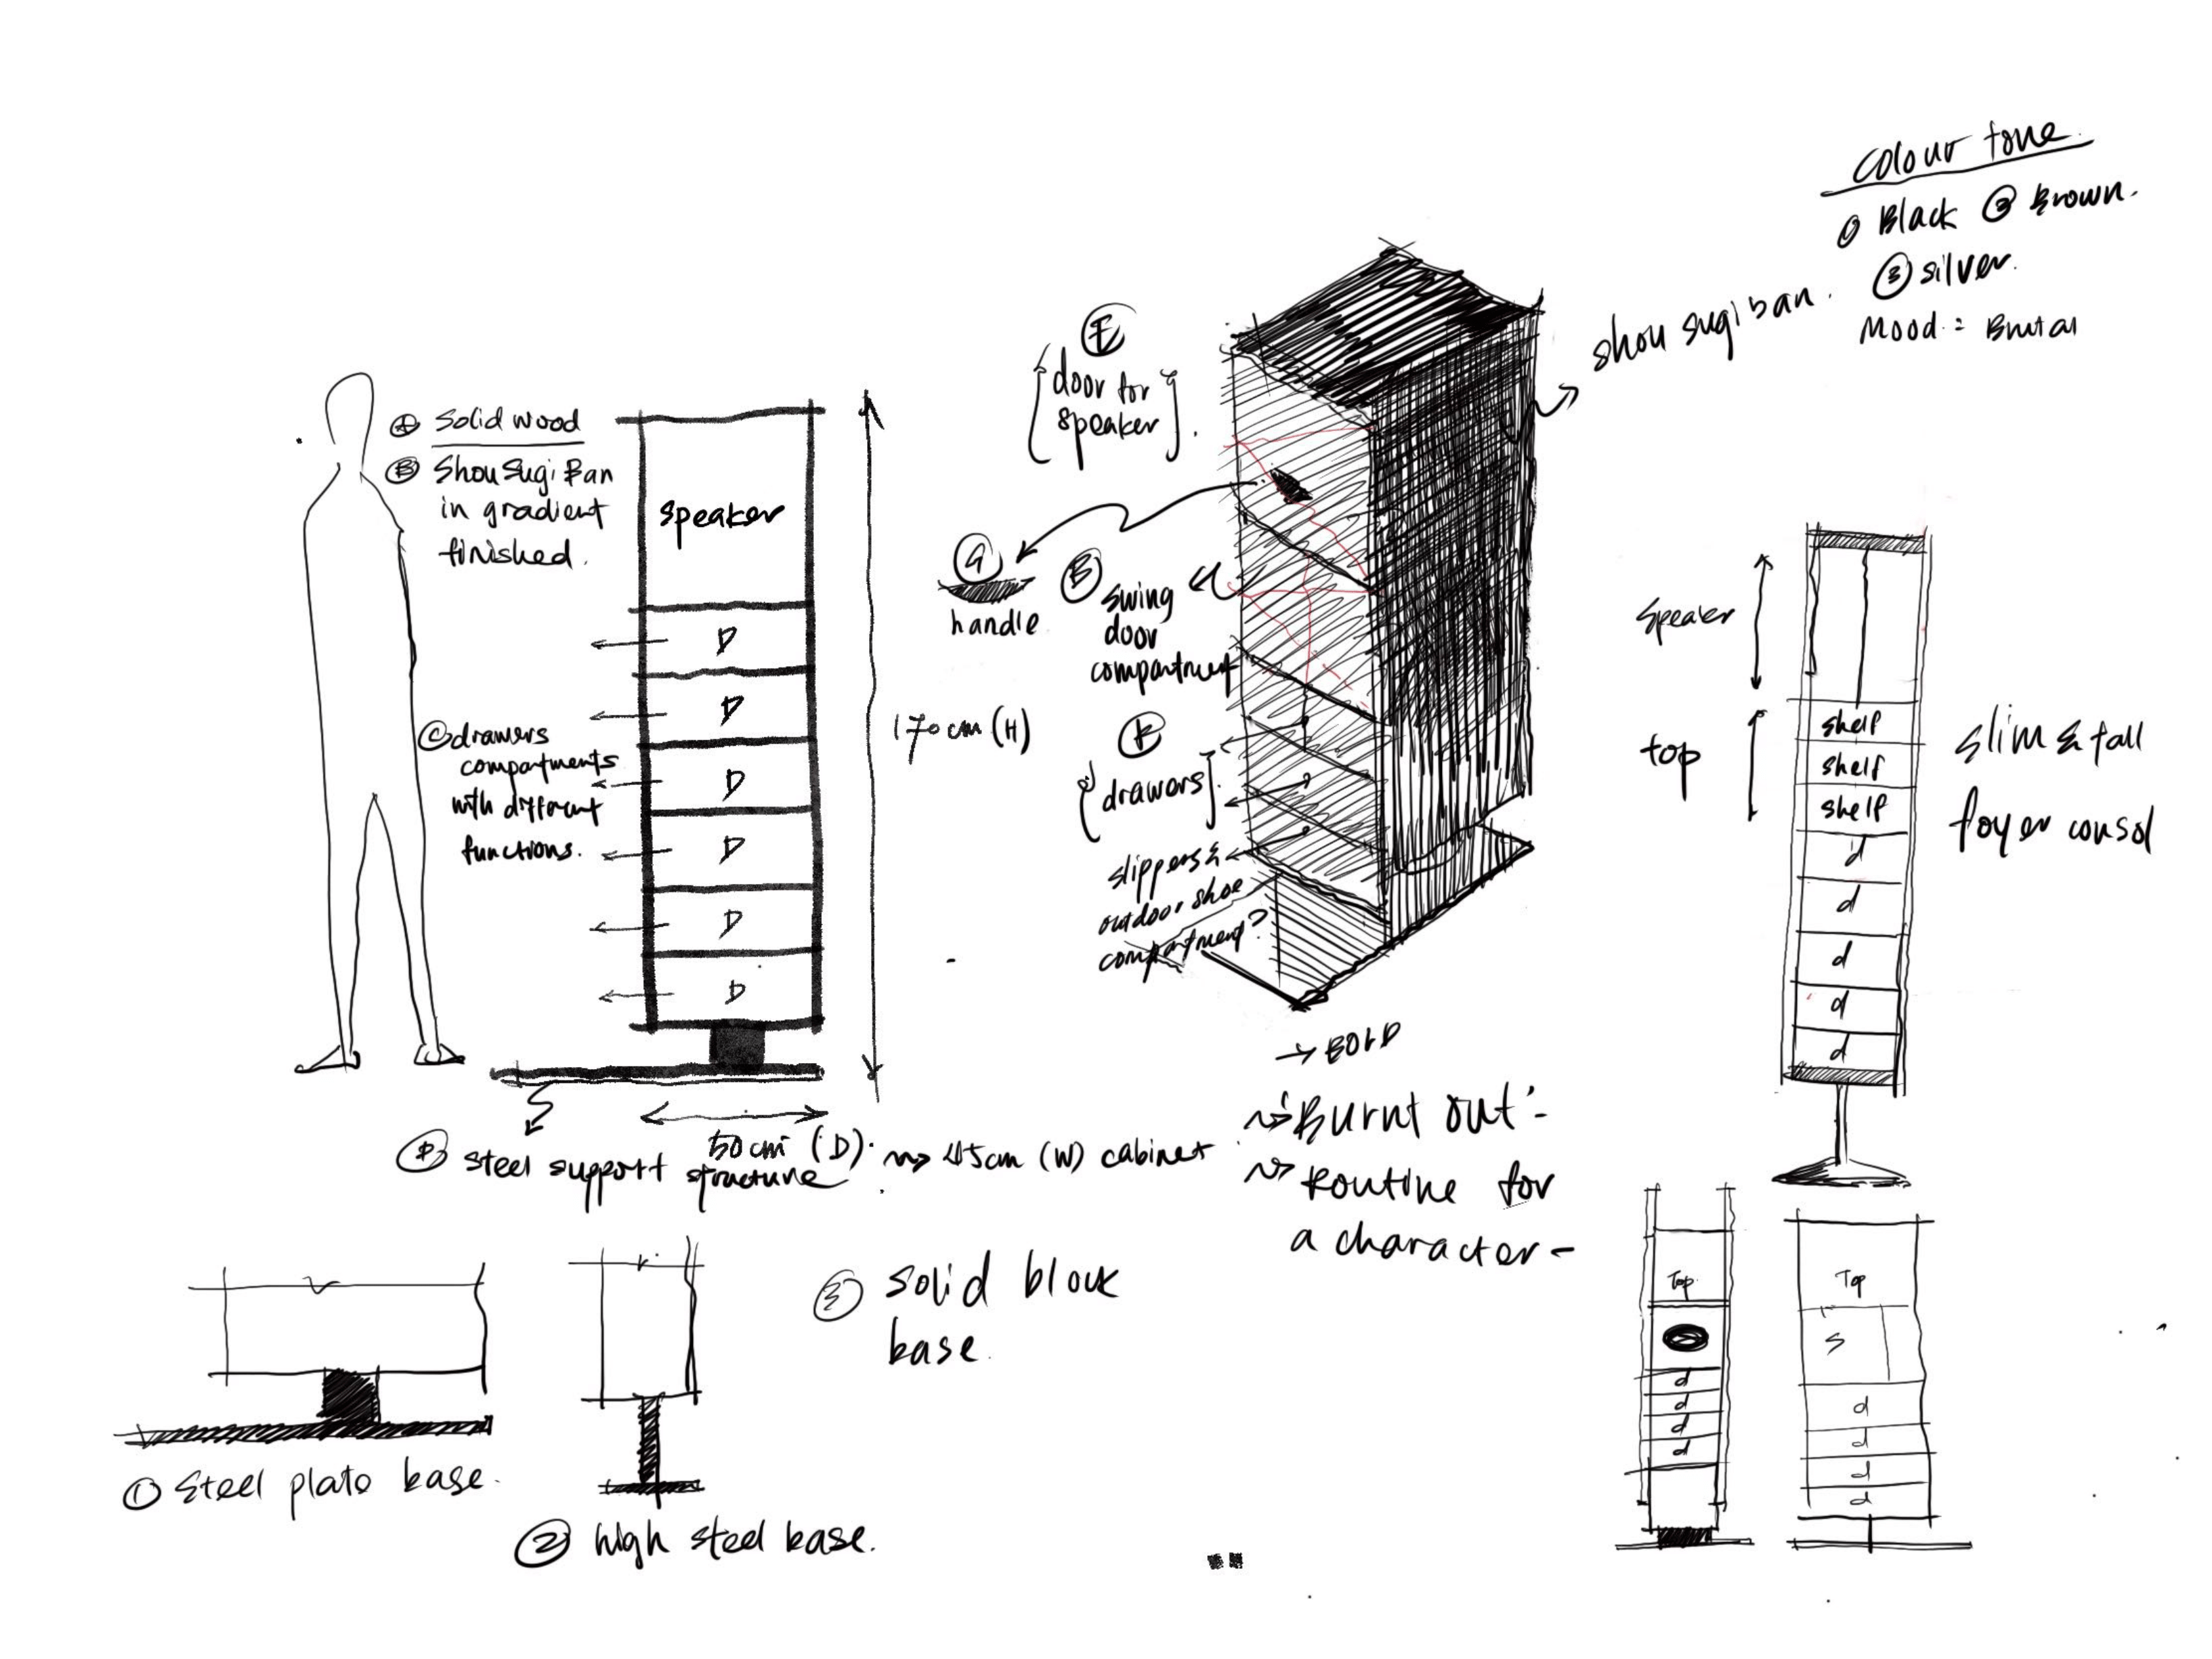 Colour tone.
① Black ② Brown.
③ silver.
Mood = Brutal
shou sugi ban.
Ⓐ Solid wood
Ⓑ Shou Sugi Ban
in gradient
finished.
speaker
D
D
D
D
D
D
Ⓒ drawers
compartments
with different
functions.
170 cm (H)
50 cm (D). 45cm (W) cabinet
Ⓓ steel support structure
Ⓔ
door for
speaker
Ⓖ
handle
swing
door
compartment
drawers
slippers &
outdoor shoe
compartment?
→ BOLD
Burnt out -
Routine for
a character -
speaker
top
shelf
shelf
shelf
d
d
d
d
d
slim & tall
foyer consol
① Steel plate base.
② high steel base.
③ solid block
base.
Top
d
d
d
d
Top
S
d
d
d
d